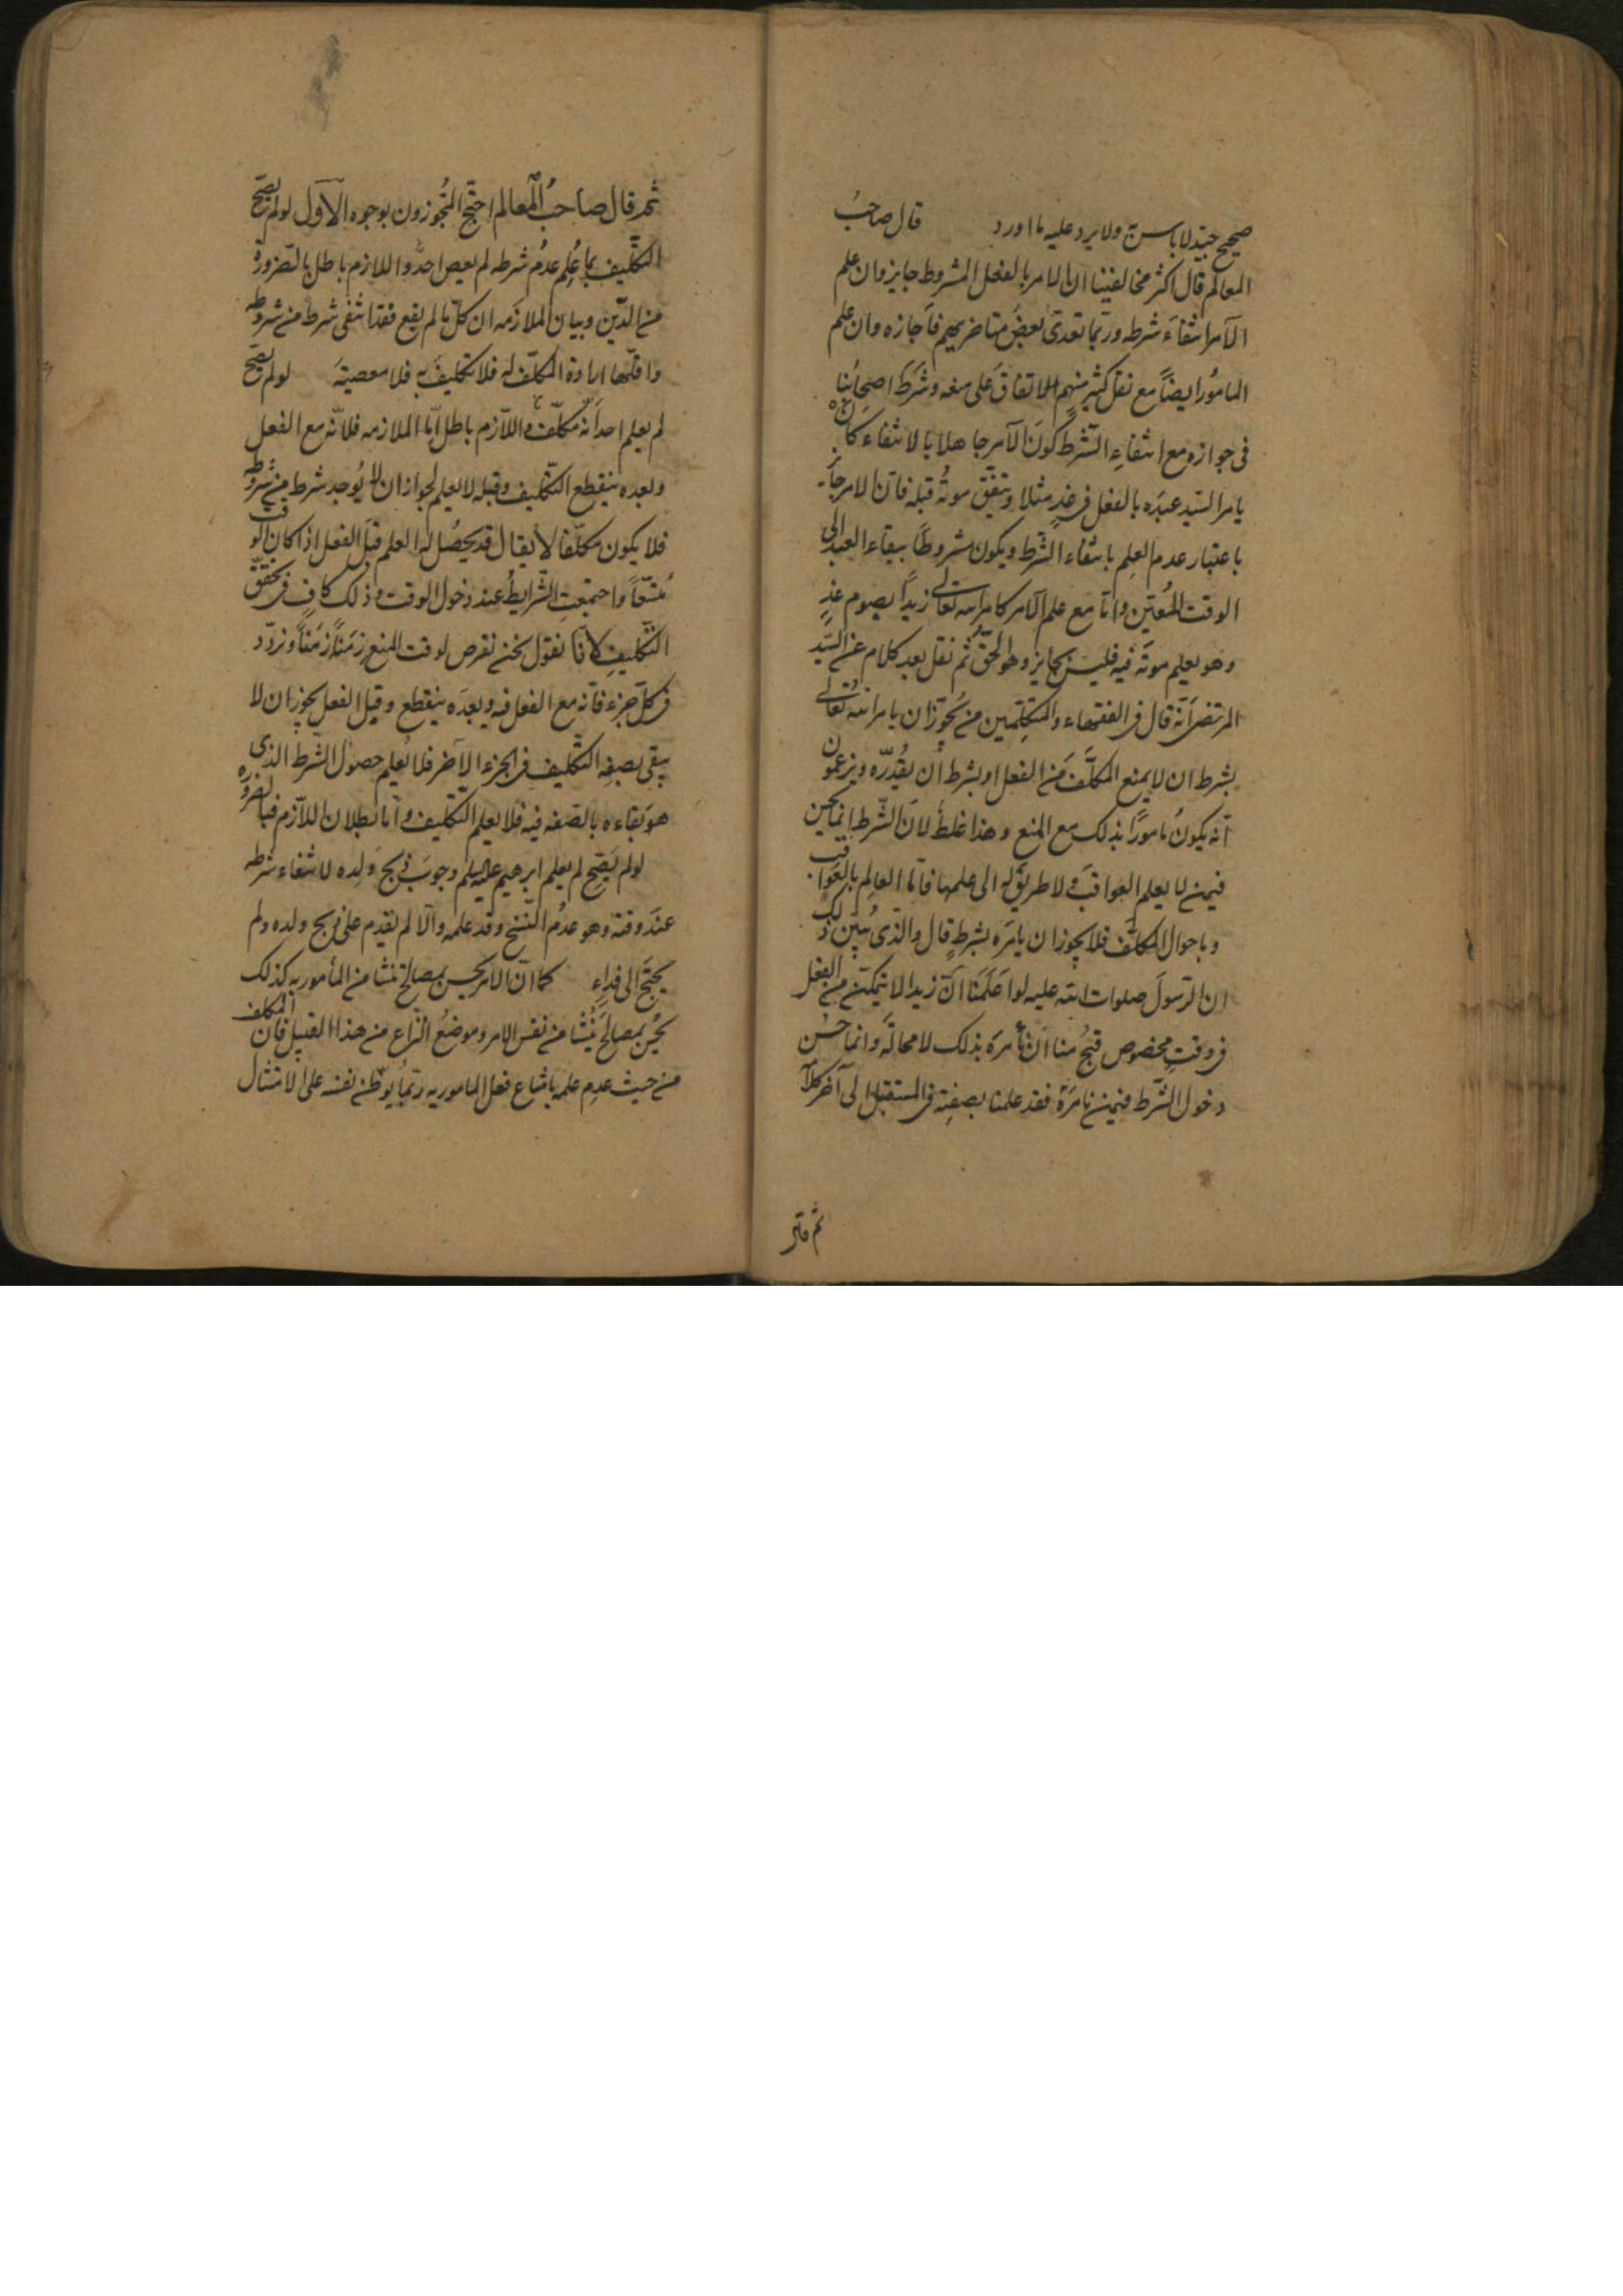 صحيح جيد لا باس به ولا يرد عليه ما اورد قال صاحبُ
المعالم قال اكثر مخالفينا ان الامر بالفعل المشروط جايز وان علم
الآمر انتفاءَ شرطه وربّما تعدىّ بعضُ متاخريهم فاَجازه وان علم
المامُور ايضاً مع نقل كثير منهم الاتفاقَ على منعه وشَرَطَ اصحابُنا
فى جوازه مع انتفاءِ الشّرط كونَ الآمر جاهلا بالانتفاء كان
يامر السّيد عبدَه بالفعل فى غدٍ مثلا ويتفّق موتُه قبله فانّ الامر جايز
باعتبار عدم العِلم بانتفاء الشّرط ويكون مشروطاً ببقاء العبد الى
الوقت المُعيّن وامّا مع علم الآمر كامر الله تعالى زيداً بصوم غدٍ
وهو يعلم موتَه فيه فليس بجايز وهو الحقّ ثم نقل بعد كلام عن السّيد
المرتضى اَنّه قال فى الفقهاء والمتكلّمين من يُجوّزان يامر الله تعالى
بشرط ان لا يمنع المكلّف من الفعل او بشرط أن يُقدّره ويزعمون
اَنّه يكونُ مامورًا بذلك مع المنع وهذا غلطٌ لانّ الشّرط انما يحسن
فيمن لا يعلم العواقبَ ولا طريقَ له الى علمها فامّا العالِم بالعَواقب
وباحوال المكلّف فلا يجوز ان يامرَه بشرطٍ قال والذى يُبين ذلك
ان الرّسولَ صلوات الله عليه لو اَعلَمَنا انّ زيدا لا يتمكّن من الفعل
فى وقتٍ مخصوص قَبُح منا ان نأمرَه بذلك لا محالَة وانما حسُن
دخول الشّرط فيمن نامرَهُ فقد علمنا بصفتِه فى المستقبل الى آخر كلا
ثم قال صاحبُ المعالم احتجّ المُجوزون بوجوه الاوّل لو لم يصحّ
التكليف بما عُلِم عدمُ شرطه لم يعص احدٌ واللازم باطل بالضرورة
من الدّين وبيان الملازمه ان كلّ ما لم يقع فقد انتفى شرط من شروطه
واقلّها ارادة المكلّف له فلا تكليفَ به فلا معصيتَه لو لم يصحّ
لم يعلم احد اَنّه مكلّف واللاّزم باطل امّا الملازمه فلانّه مع الفعل
وبعده ينقطع التّكليف وقبله لا يعلم لجواز ان لا يُوجد شرط من شروطه
فلا يكون مكلّفا لا يقال قد يحصُل له العلم قبلَ الفعل اذا كان الوقت
مُتّسعاً واجتمعتِ الشّرايطُ عند دخول الوقت وذلك كافٍ فى تحقّق
التّكليفِ لانّا نقول نحن نفرض لوقت المنع زَمَناً زَمَناً ونردّد
فى كلّ جزء فانّه مع الفعل فيه وبعدَه ينقطع وقبل الفعل يجوز ان لا
يبقى بصفِه التكليف فى الجزء الآخر فلا يُعلم حصولُ الشّرط الذى
هو بقاءه بالصّفه فيه فلا يعلم التّكليف وامّا بطلان اللاّزم فبالضروره
لو لم يَصِّح لم يعلم ابرهيم عليه السلم وجوبَ ذبح ولِده لانتفاء شرطه
عندَ وقته وهو عدمُ النّسخ وقد علمه والاّ لم يُقدِم على ذبح ولده ولم
يحتجَ الى فداءٍ كما انّ الامر يحسن بمصالح تنشا من المأمور به كذلك
يحُسن بمصالحَ يُنْشا من نفس الامر وموضعُ النّزاع من هذا القبيل فانّ المكلف
من حيث عدِم علمه بامتناع فعل المامور به ربّما يُوطّن نفسَه على الامتثال